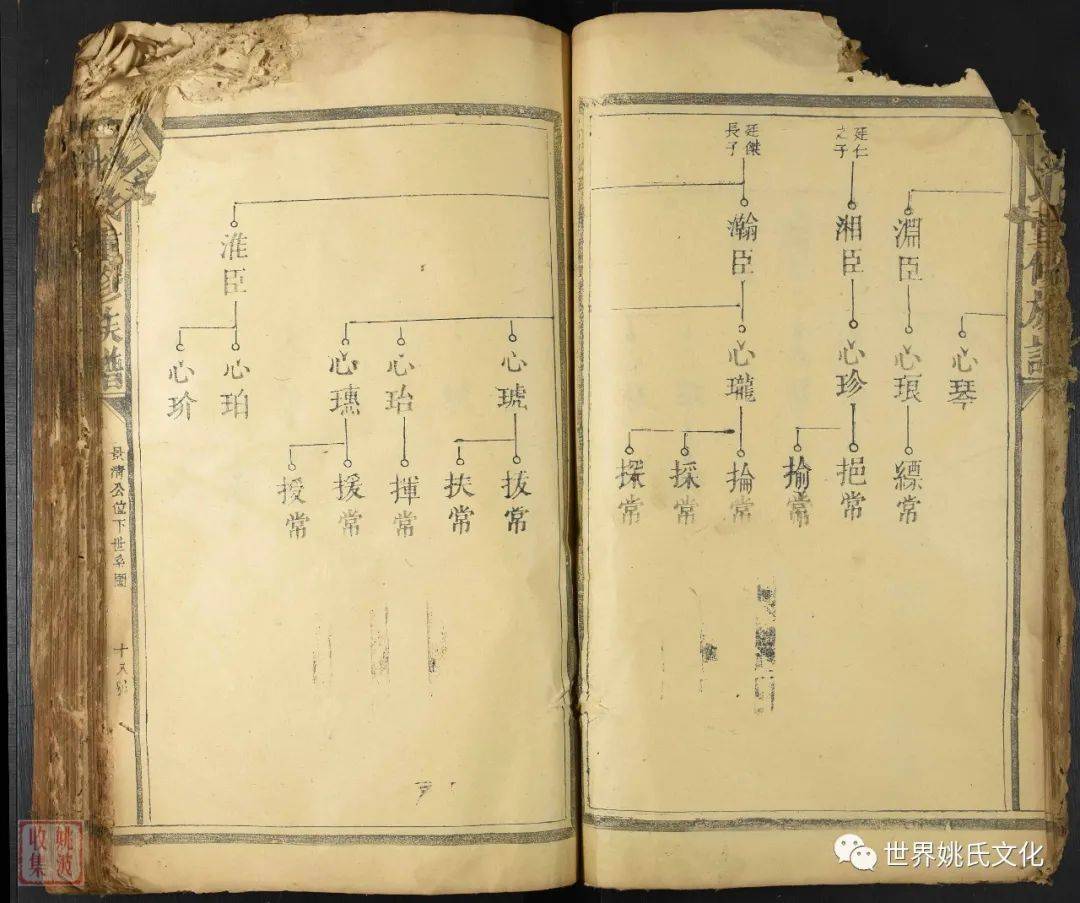 心琴
淵臣
心琅
縹常
廷仁
之子
湘臣
心珍
挹常
揄常
廷傑
長子
瀚臣
心瓏
掄常
採常
探常
心琥
拔常
扶常
心珆
揮常
心璤
援常
授常
淮臣
心珀
心玠
重修族譜
景清公位下世系圖
姚波
收集
世界姚氏文化